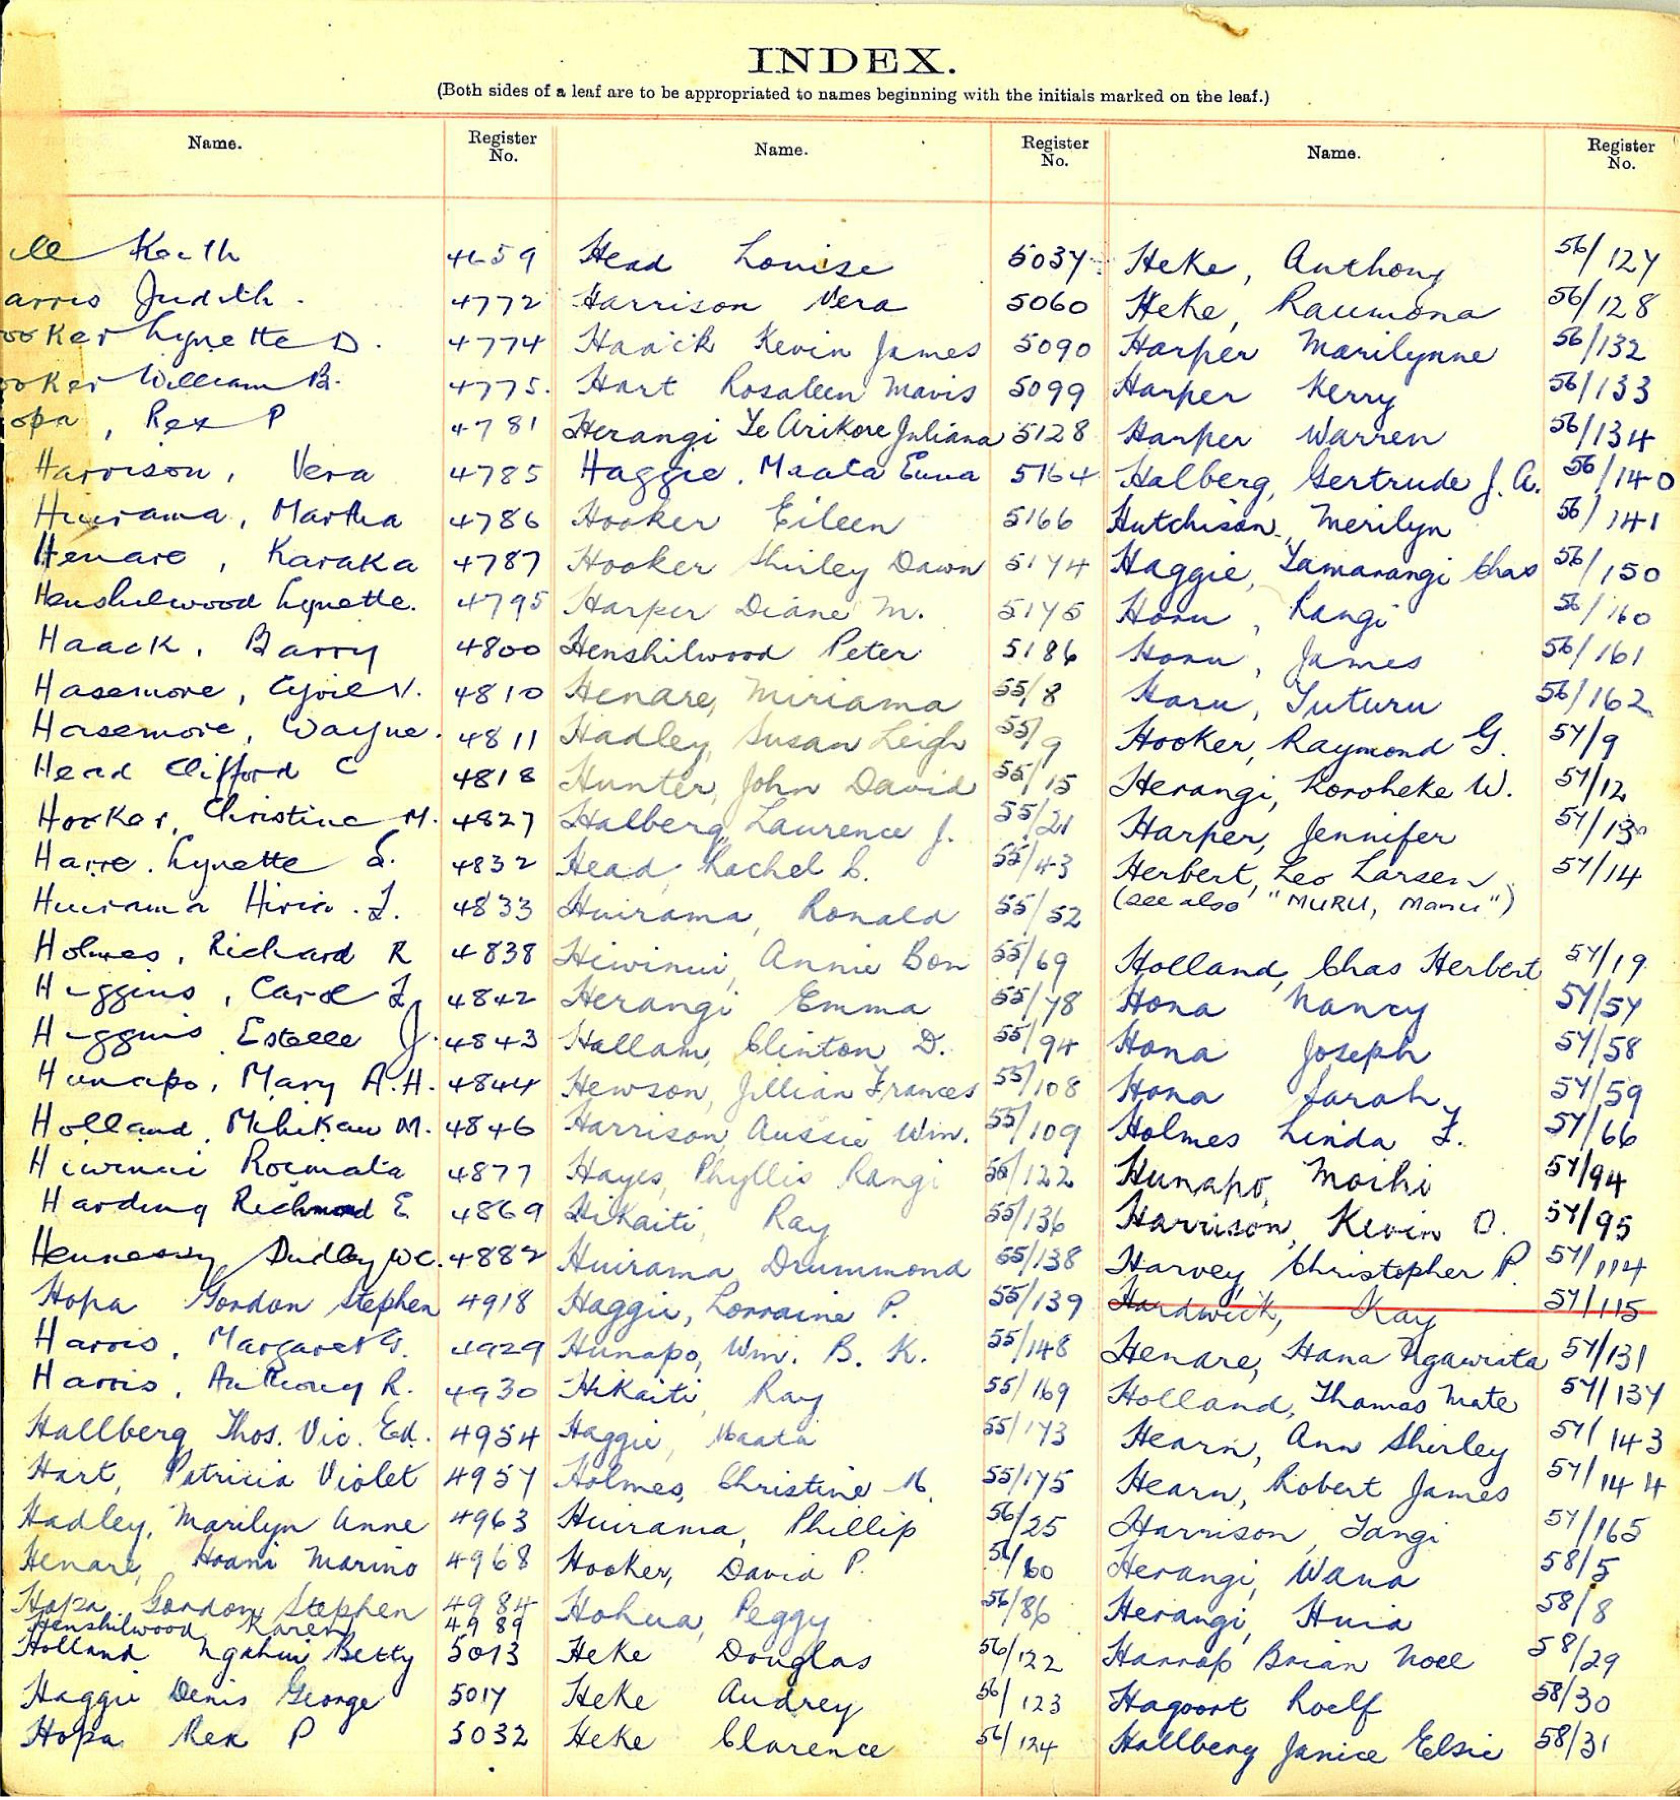 INDEX.
(Both sides of a leaf are to be appropriated to names beginning with the initials marked on the leaf.)
Name. Register No. Name. Register No. Name. Register No.
Keith 4659
arris Judith. 4772
ooker Lynette D. 4774
ooker William B. 4775.
opa, Rex P 4781
Harrison, Vera 4785
Huirama, Martha 4786
Henare, Karaka 4787
Henshilwood Lynette. 4795
Haack, Barry 4800
Hasemore, Cyril V. 4810
Hasemore, Wayne. 4811
Head Clifford C 4818
Hooker, Christine M. 4827
Harre. Lynette S. 4832
Huirama Hiria. T. 4833
Holmes, Richard R 4838
Higgins, Carol J 4842
Higgins Estelle J. 4843
Hunapo, Mary A.H. 4844
Holland, Mihikau M. 4846
Hiwinui Roimata 4877
Harding Richmond E 4869
Hennessy Dudley W.C. 4882
Hopa Gordon Stephen 4918
Harris, Margaret G. 4929
Harris, Anthony R. 4930
Hallberg Thos. Vic. Ed. 4954
Hart, Patricia Violet 4957
Hadley, Marilyn Anne 4963
Henare, Hoani Marino 4968
Hopa Gordon Stephen 4984
Henshilwood Karen 4989
Holland Ngahuii Betty 5013
Haggie Denis George 5017
Hopa Rex P 5032
Head Louise 5037
Harrison Vera 5060
Haack Kevin James 5090
Hart Rosaleen Mavis 5099
Herangi Te Arikore Juliana 5128
Haggie. Maata Euna 5164
Hooker Eileen 5166
Hooker Shirley Dawn 5174
Harper Diane M. 5175
Henshilwood Peter 5186
Henare, Miriama 55/8
Hadley, Susan Leigh 55/9
Hunter, John David 55/15
Halberg, Laurence J. 55/21
Head, Rachel C. 55/43
Huirama, Ronald 55/52
Hiwinui, Annie Bon 55/69
Herangi Emma 55/78
Hallam, Clinton D. 55/94
Hewson, Jillian Frances 55/108
Harrison, Aussie Wm. 55/109
Hayes, Phyllis Rangi 55/122
Hikaiti, Ray 55/136
Huirama Drummond 55/138
Haggie, Lorraine P. 55/139
Hunapo, Wm. B. K. 55/148
Hikaiti, Ray 55/169
Haggie, Maata 55/173
Holmes, Christine M. 55/175
Huirama, Phillip 56/25
Hooker, David P. 56/60
Hohua, Peggy 56/86
Heke Douglas 56/122
Heke Audrey 56/123
Heke Clarence 56/124
Heke, Anthony 56/127
Heke, Raumona 56/128
Harper Marilynne 56/132
Harper Kerry 56/133
Harper Warren 56/134
Halberg, Gertrude J. A. 56/140
Hutchison, Merilyn 56/141
Haggie, Tamarangi Chas 56/150
Horu, Rangi 56/160
Horu, James 56/161
Haru, Tuturu 56/162
Hooker, Raymond G. 57/9
Herangi, Koroheke W. 57/12
Harper, Jennifer 57/13
Herbert, Leo Larsen 57/14
(see also "MURU, Manu")
Holland, Chas Herbert 57/19
Hona Nancy 57/57
Hona Joseph 57/58
Hona Sarah 57/59
Holmes Linda F. 57/66
Hunapo, Moihi 57/94
Harrison, Kevin O. 57/95
Harvey, Christopher P. 57/114
Hardwick, Kay 57/115
Henare, Hana Ngawiata 57/131
Holland, Thomas Mate 57/137
Hearn, Ann Shirley 57/143
Hearn, Robert James 57/144
Harrison, Tangi 57/165
Herangi, Wana 58/5
Herangi, Huia 58/8
Harrap Brian Noel 58/29
Hagoort Roelf 58/30
Hallberg Janice Elsie 58/31